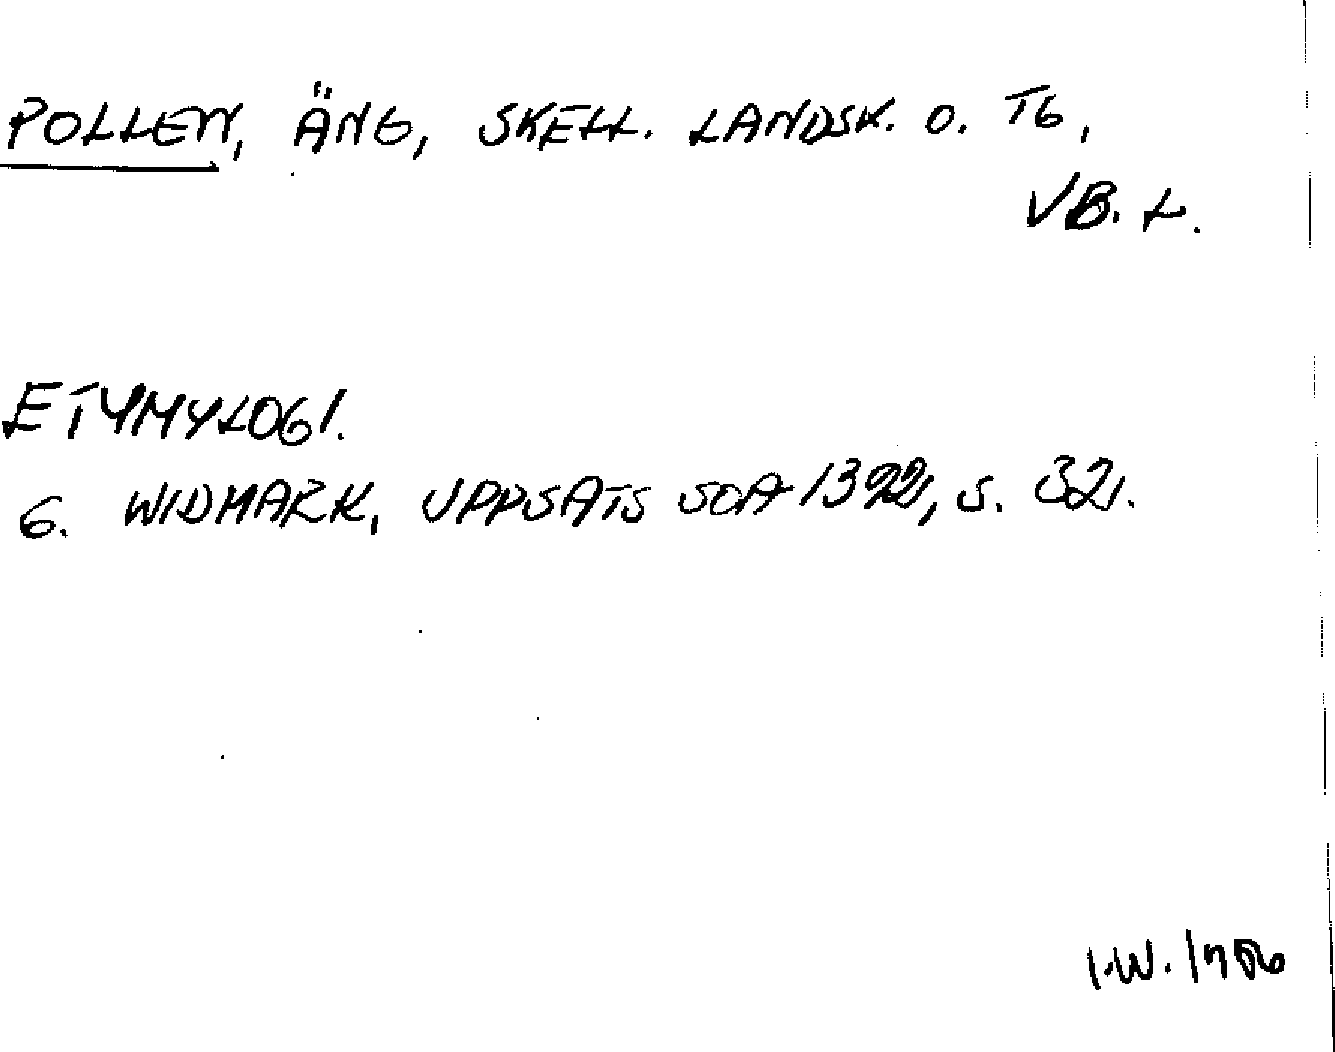 POLLEN, ÄNG, SKELL. LANDSK. O. TG,
VB. L.
ETYMYLOGI.
G. WIDMARK, UPPSATS SOA 1392, S. 32.
I.W. 1956